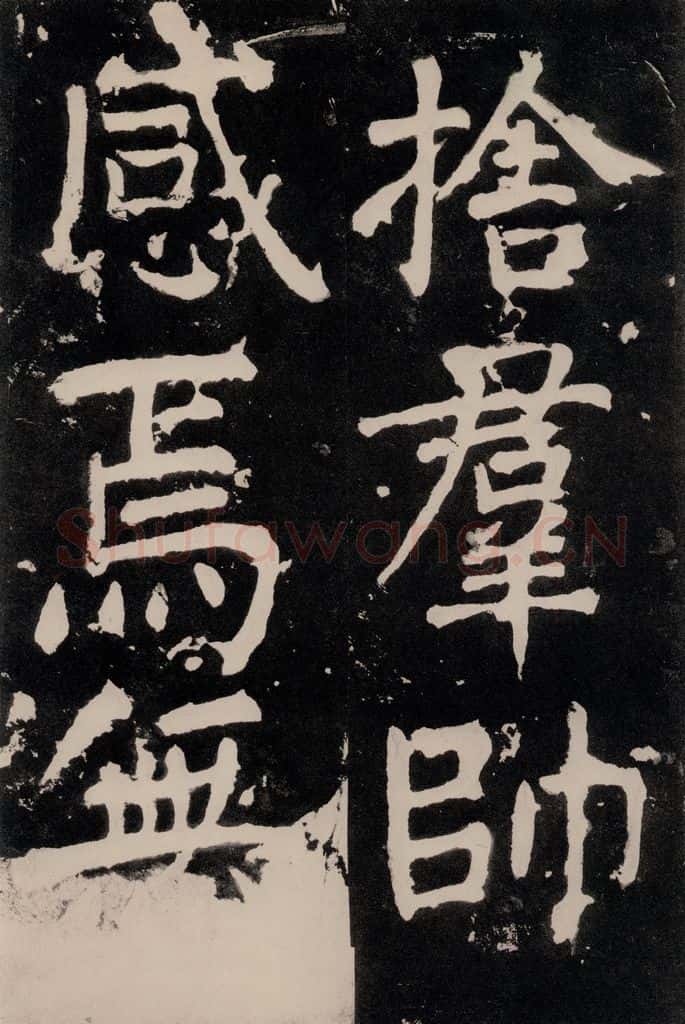 捨羣帥
感焉無
Shufawang.CN